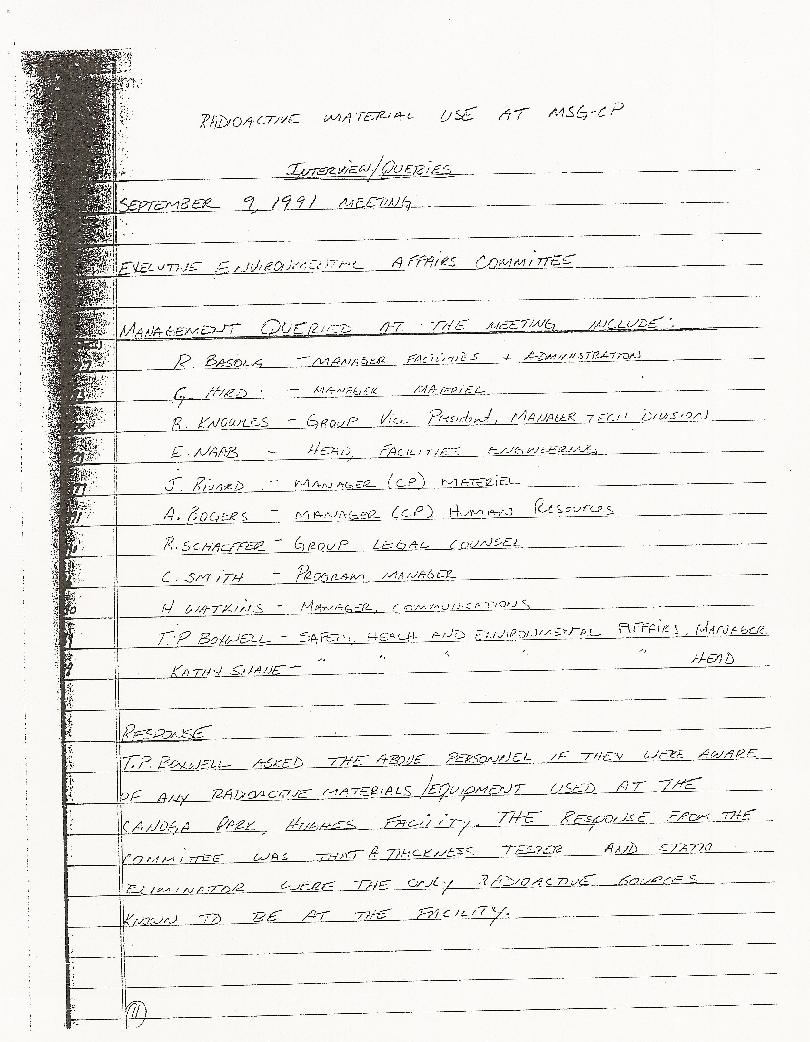 RADIOACTIVE MATERIAL USE AT MSG-CP
INTERVIEW/QUERIES
SEPTEMBER 9, 1991 MEETING
EXECUTIVE ENVIRONMENTAL AFFAIRS COMMITTEE
MANAGEMENT QUERIED AT THE MEETING INCLUDE:
R. BASOLA - MANAGER FACILITIES + ADMINISTRATION
G. HIRD - MANAGER MATERIEL
R. KNOWLES - GROUP VICE PRESIDENT, MANAGER TECH DIVISION
E. NAAB - HEAD, FACILITIES ENGINEERING
J. RIVARD - MANAGER (CP) MATERIEL
A. ROGERS - MANAGER (CP) HUMAN RESOURCES
R. SCHAEFFER - GROUP LEGAL COUNSEL
C. SMITH - PROGRAM MANAGER
H WATKINS - MANAGER, COMMUNICATIONS
T.P BOXWELL - SAFETY, HEALTH AND ENVIRONMENTAL AFFAIRS, MANAGER
KATHY - " " " " " HEAD
RESPONSE
T.P. BOXWELL ASKED THE ABOVE PERSONNEL IF THEY WERE AWARE
OF ANY RADIOACTIVE MATERIALS/EQUIPMENT USED AT THE
CANOGA PARK, HUGHES FACILITY. THE RESPONSE FROM THE
COMMITTEE WAS THAT A THICKNESS TESTER AND STATIC
ELIMINATOR WERE THE ONLY RADIOACTIVE SOURCES
KNOWN TO BE AT THE FACILITY.
11